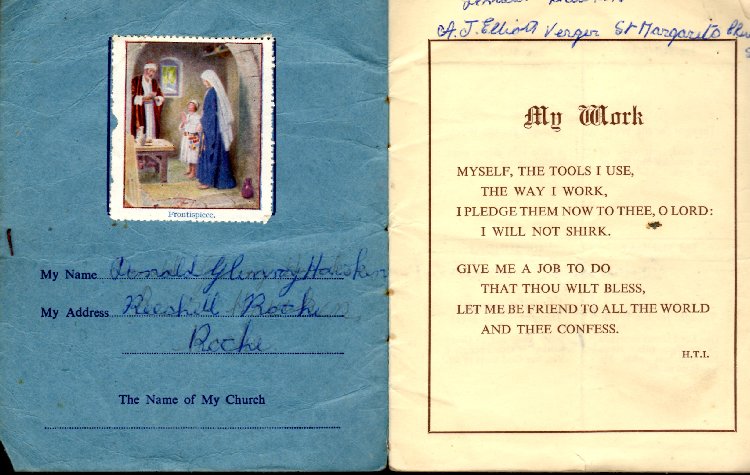 Frontispiece.
My Name Donald Glenroy
My Address Rocke
Roche
The Name of My Church
A. J. Elliott Verger St Margarits
My Work
MYSELF, THE TOOLS I USE,
THE WAY I WORK,
I PLEDGE THEM NOW TO THEE, O LORD:
I WILL NOT SHIRK.
GIVE ME A JOB TO DO
THAT THOU WILT BLESS,
LET ME BE FRIEND TO ALL THE WORLD
AND THEE CONFESS.
H.T.I.